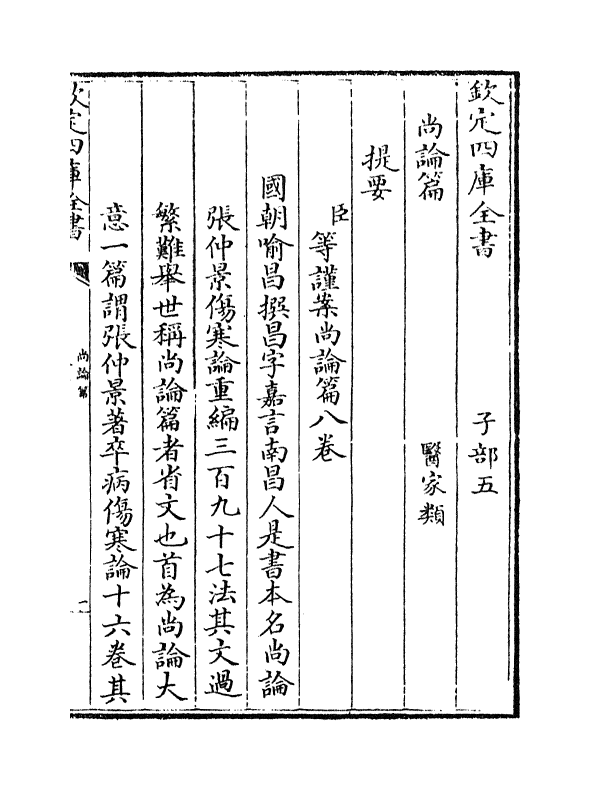 欽定四庫全書　子部五
尚論篇　醫家類
提要
臣等謹案尚論篇八卷
國朝喻昌撰昌字嘉言南昌人是書本名尚論
張仲景傷寒論重編三百九十七法其文過
繁難舉世稱尚論篇者省文也首為尚論大
意一篇謂張仲景著卒病傷寒論十六卷其
欽定四庫全書
尚論篇
一